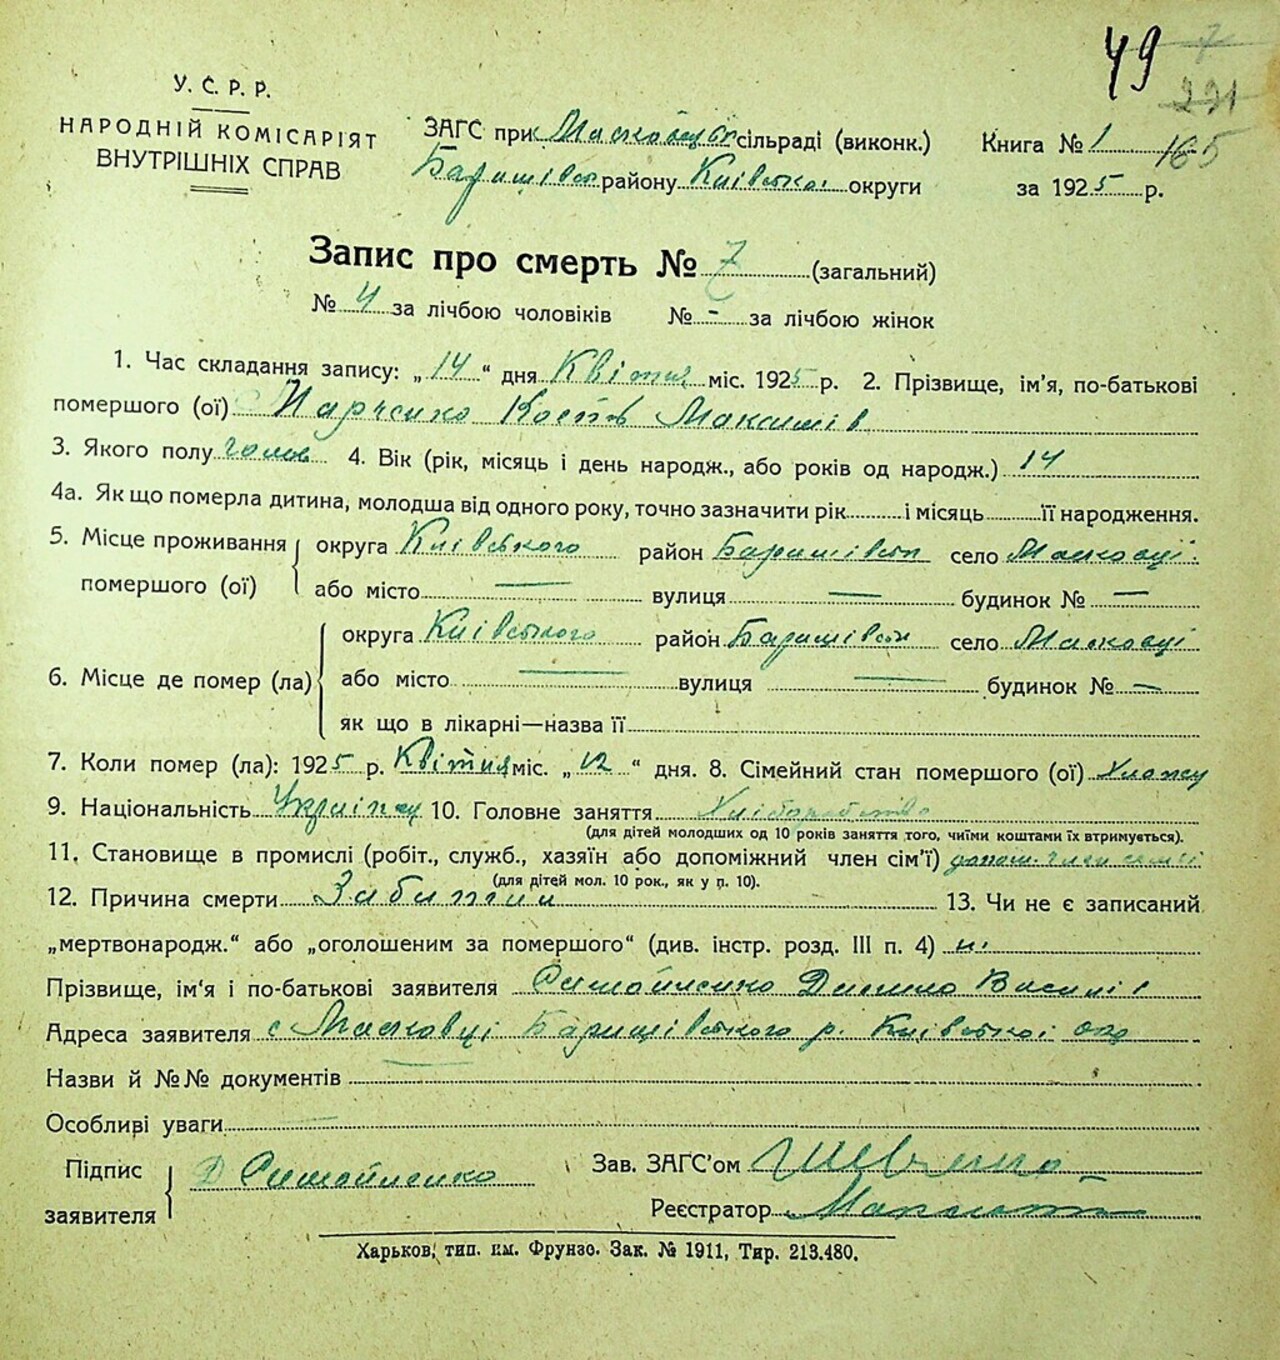 49 7
221
У. С. Р. Р.
НАРОДНІЙ КОМІСАРІЯТ
ВНУТРІШНІХ СПРАВ
ЗАГС при сільраді (виконк.)
району Київської округи
Книга № 1 165
за 1925 р.
Запис про смерть № 7 (загальний)
№ 4 за лічбою чоловіків № - за лічбою жінок
1. Час складання запису: „14“ дня Квітня міс. 1925 р. 2. Прізвище, ім'я, по-батькові
помершого (ої) Максимів
3. Якого полу чолов 4. Вік (рік, місяць і день народж., або років од народж.) 14
4а. Як що померла дитина, молодша від одного року, точно зазначити рік і місяць її народження.
5. Місце проживання помершого (ої) округа Київського район Баришівськ село Масковці
або місто — вулиця — будинок № —
6. Місце де помер (ла) округа Київського район Баришівськ село Масковці
або місто — вулиця — будинок № —
як що в лікарні—назва її
7. Коли помер (ла): 1925 р. Квітня міс. „12“ дня. 8. Сімейний стан помершого (ої)
9. Національність 10. Головне заняття Хліборобство
(для дітей молодших од 10 років заняття того, чиїми коштами їх втримується).
11. Становище в промислі (робіт., служб., хазяїн або допоміжний член сім'ї) допом. член семії
(для дітей мол. 10 рок., як у п. 10).
12. Причина смерти 13. Чи не є записаний
„мертвонародж.“ або „оголошеним за помершого“ (див. інстр. розд. III п. 4) ні
Прізвище, ім'я і по-батькові заявителя
Адреса заявителя с Масковці Баришівського р. Київської окр
Назви й №№ документів —
Особливі уваги —
Підпис
заявителя
Зав. ЗАГС'ом
Реєстратор
Харьков, тип. им. Фрунзе. Зак. № 1911, Тир. 213.480.